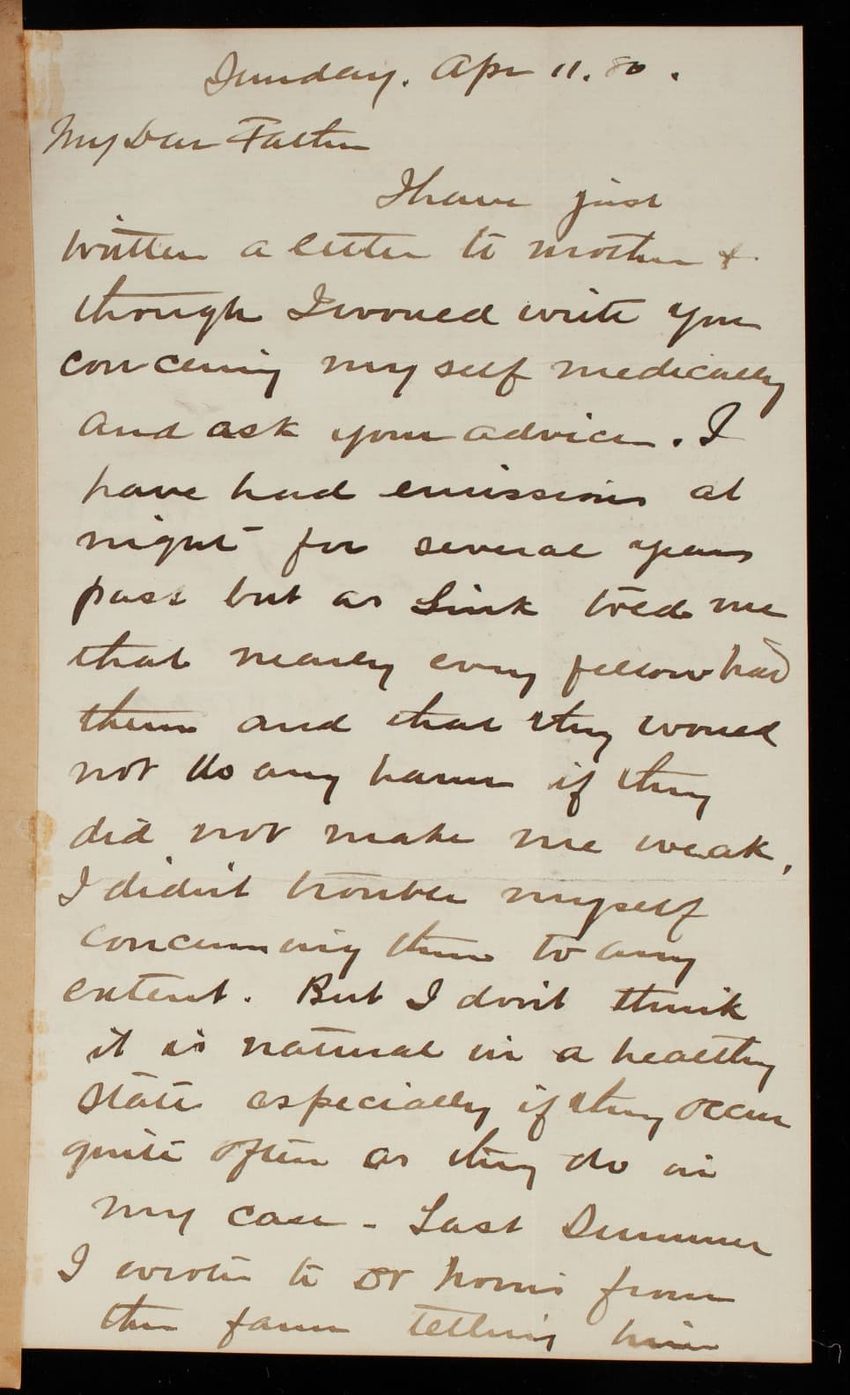 Sunday. Apr 11. 80.
My Dear Father
I have just
written a letter to mother &
though I would write you
concerning my self medically
and ask your advice. I
have had emissions at
night for several years
past but as Link told me
that nearly every fellow had
them and that they would
not do any harm if they
did not make me weak,
I didn't trouble myself
concerning them to any
extent. But I don't think
it is natural in a healthy
state especially if they occur
quite often as they do in
my case - Last Summer
I wrote to Dr from
the farm telling him